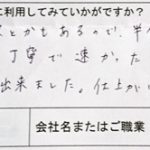 に利用してみていかがですか？
とかもあるので、
丁寧で速かった
出来ました。仕上が
会社名またはご職業